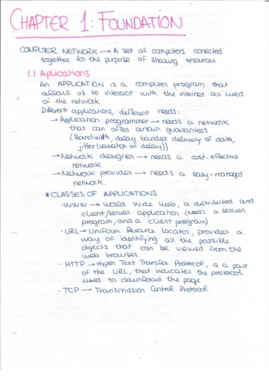 CHAPTER 1: FOUNDATION
COMPUTER NETWORK → A set of computers conected
together for the purpose of sharing resources
1.1 Aplications
An APPLICATION is a computer program that
allows us to interact with the internet as users
of the network
Different applications, different needs:
→ Application programmer → needs a network
that can offer certain guarantees
(Bandwidth, delay, bonded delivery of data,
jitter (variation of delay))
→ Network designer → needs a cost-effective
network
→ Network provider → needs a easy-managed
network.
* CLASSES OF APPLICATIONS
· WWW → World Wide Web, a distributed and
client/server application (needs a server
program, and a client program)
· URL → Uniform Resource Locator, provides a
way of identifying all the possible
objects that can be viewed from the
web browser
· HTTP → Hyper Text Transfer Protocol, is a part
of the URL, that indicates the protocol
used to download the page
· TCP → Transmission Control Protocol.